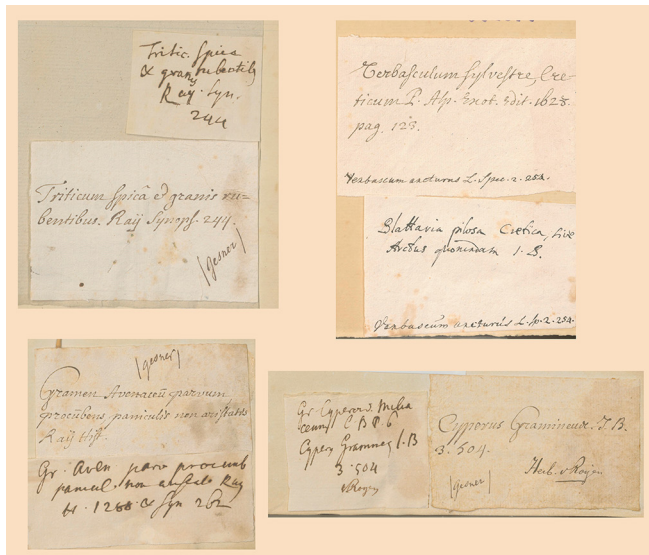 Tritic. Spica
& granis rubentib.
Raij Syn.
244
Triticum spicâ & granis ru=
bentibus. Raij Synops. 244.
(gesner)
Verbasculum sylvestre, Cre-
ticum P. Alp. Exot. Edit. 1628.
pag. 123.
Verbascum arcturus L. Spec. 2. 254.
Blattaria pilosa Cretica, sive
Arctus quorundam I. B.
Verbascum arcturus L. Sp. 2. 254.
(gesner)
Gramen Avenaceū parvum
procūbens, paniculis non aristatis
Raij Hist.
Gr. Aven parv procumb
panicul. non aristatis Ray
H. 1288 & Syn 262
Gr. Cyperoid. Milia
ceum C B P. 6
Cyperus Gramineus I. B
3. 504
v Royen
Cyperus Gramineus. J. B.
3. 504.
Herb. v Royen
(gesner)